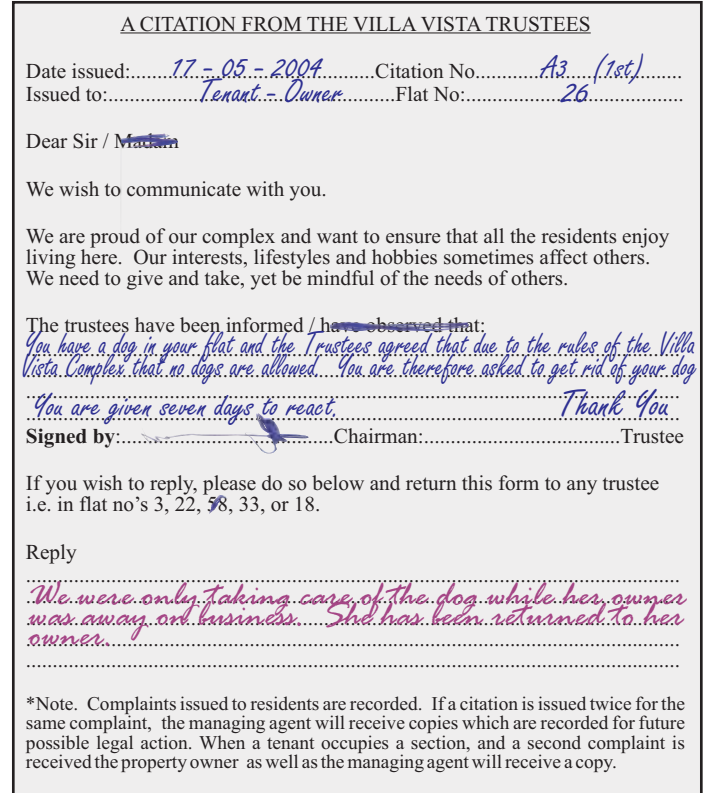 A CITATION FROM THE VILLA VISTA TRUSTEES
Date issued:.......17 - 05 - 2004.........Citation No...........A3 (1st)........
Issued to:................Tenant - Owner.........Flat No:....................26.....................
Dear Sir / Madam
We wish to communicate with you.
We are proud of our complex and want to ensure that all the residents enjoy
living here. Our interests, lifestyles and hobbies sometimes affect others.
We need to give and take, yet be mindful of the needs of others.
The trustees have been informed / have observed that:
You have a dog in your flat and the Trustees agreed that due to the rules of the Villa
Vista Complex that no dogs are allowed. You are therefore asked to get rid of your dog
You are given seven days to react. Thank You
Signed by:....................................Chairman:....................................Trustee
If you wish to reply, please do so below and return this form to any trustee
i.e. in flat no's 3, 22, 58, 33, or 18.
Reply
We were only taking care of the dog while her owner
was away on business. She has been returned to her
owner.
*Note. Complaints issued to residents are recorded. If a citation is issued twice for the
same complaint, the managing agent will receive copies which are recorded for future
possible legal action. When a tenant occupies a section, and a second complaint is
received the property owner as well as the managing agent will receive a copy.